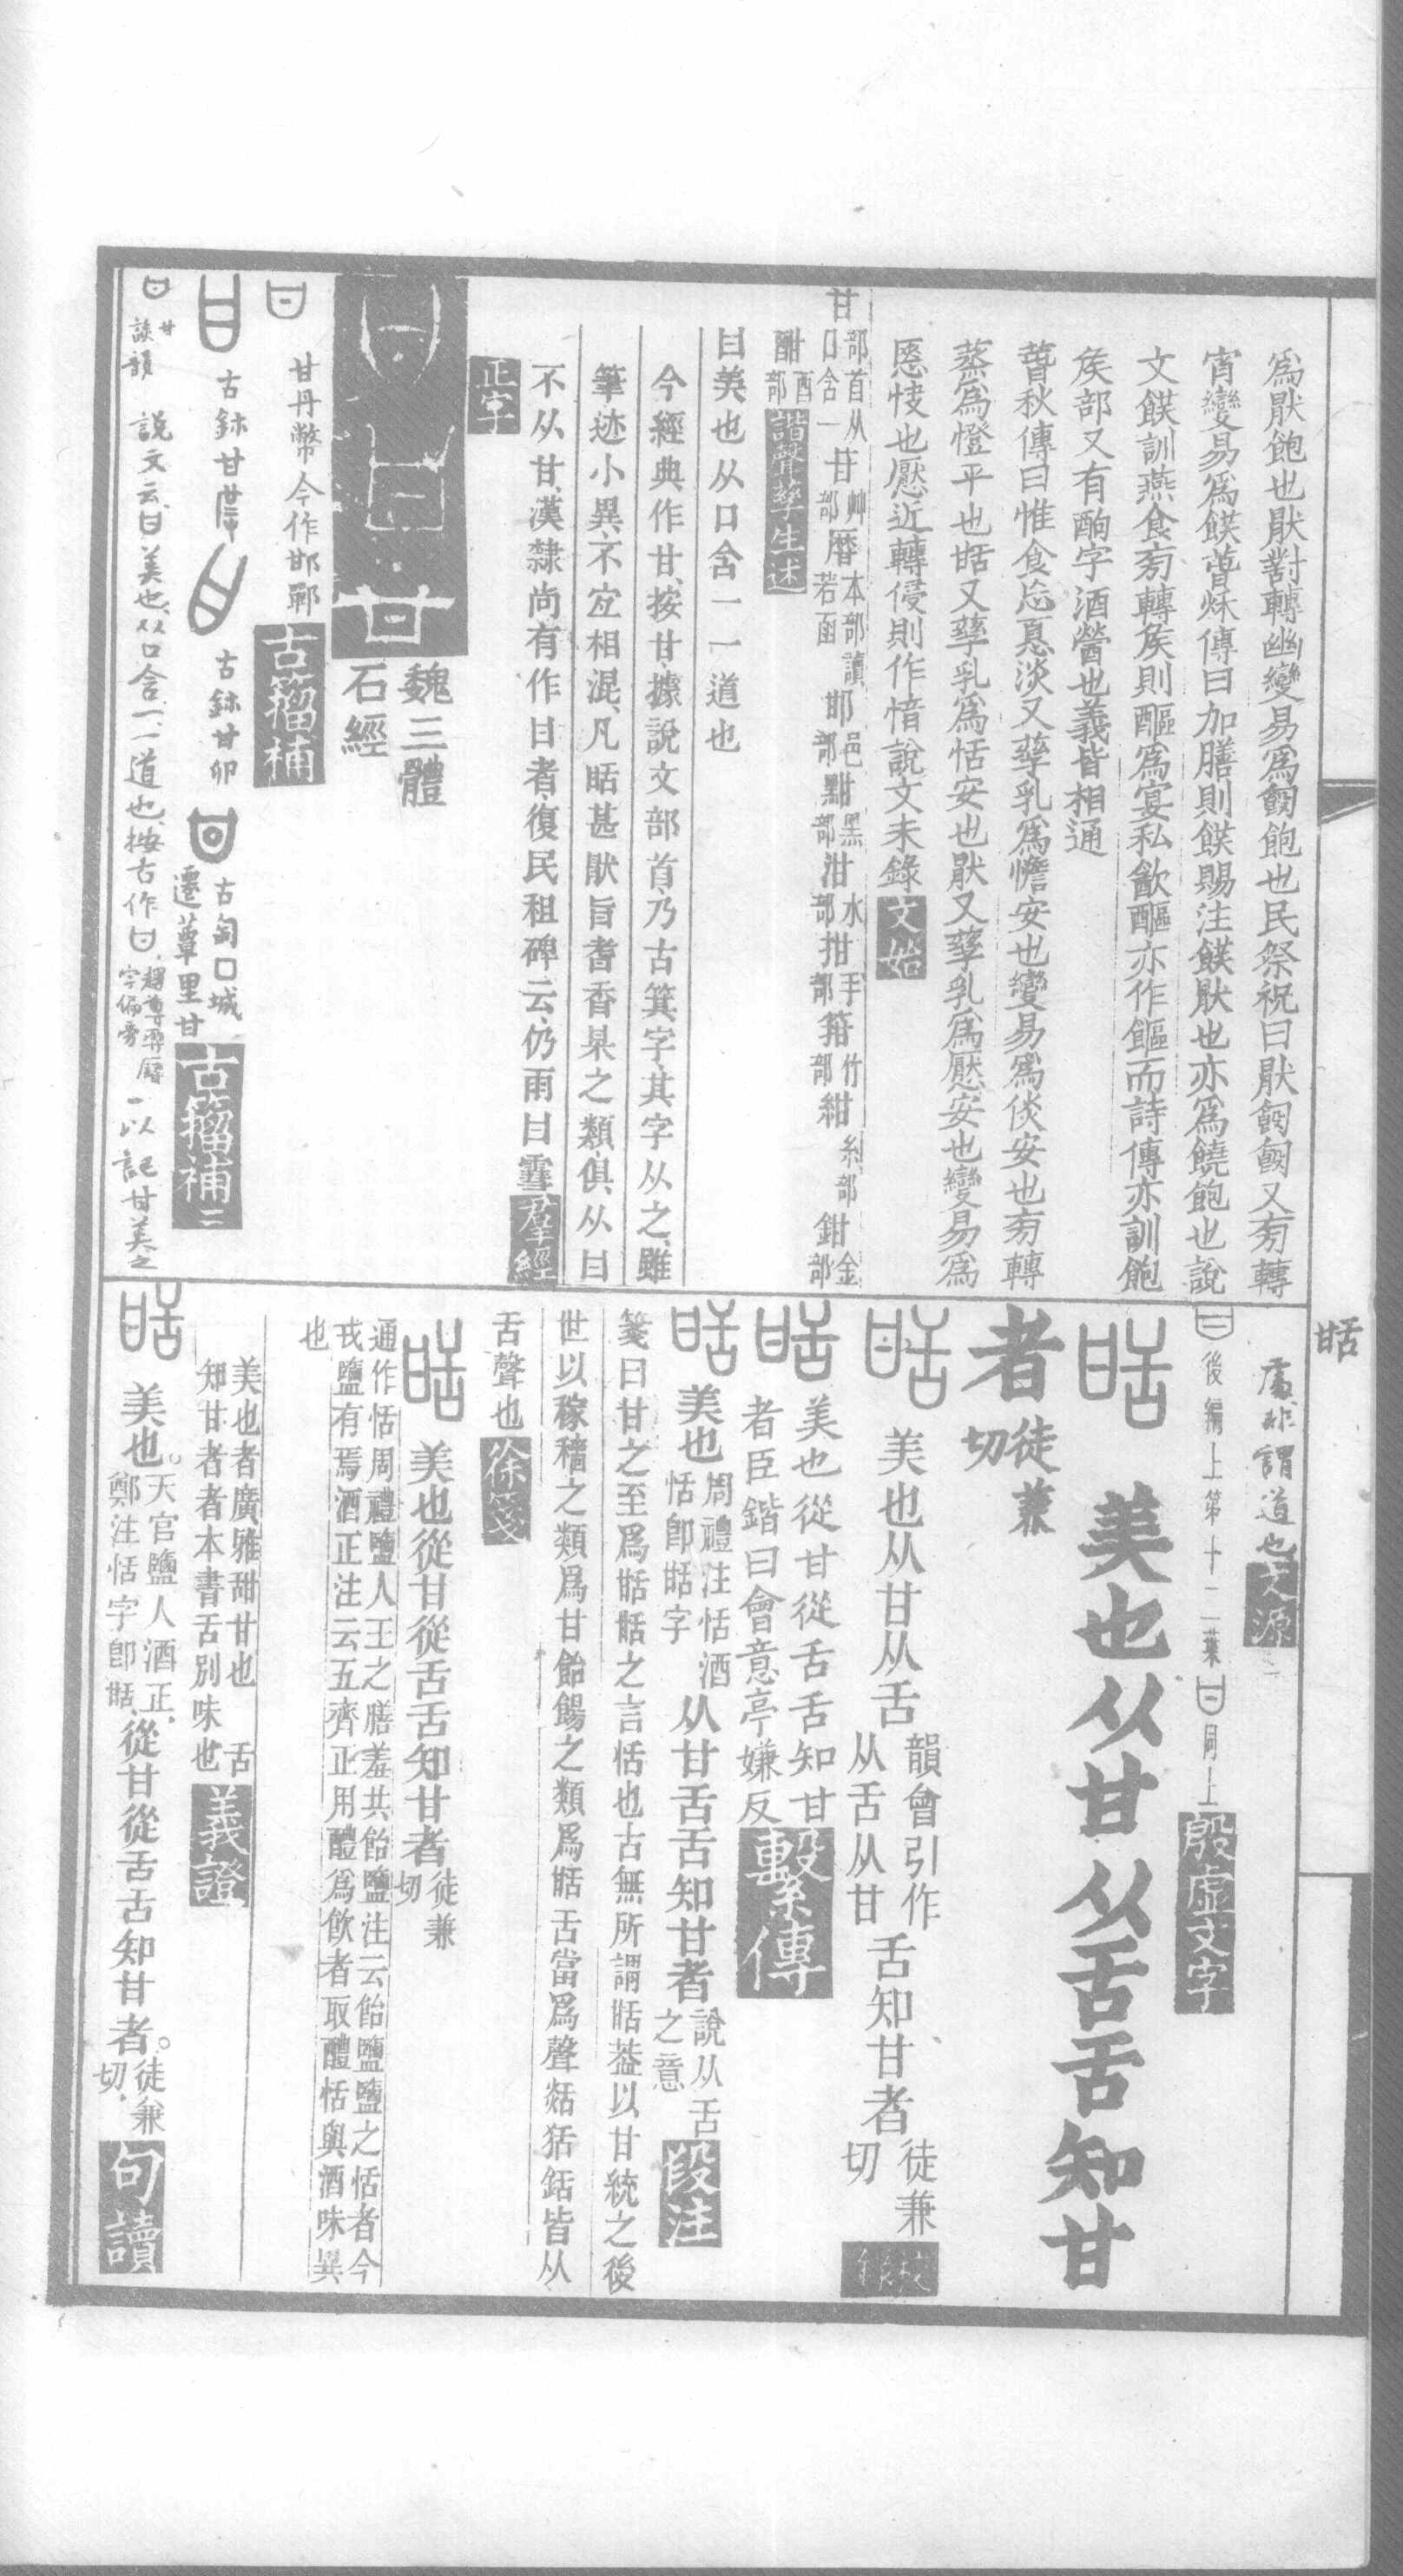 爲猒飽也猒對轉幽變易爲餶飽也民祭祝曰猒飽又旁轉
宵變易爲饫簹秌傳曰加膳則饫賜注饫猒也亦爲饒飽也說
文饫訓燕食旁轉矦則醧爲宴私歓醧亦作饇而詩傳亦訓飽
矦部又有酌字酒醟也義皆相通
簹秋傳曰惟食忘惪淡又孳乳爲憺安也變易爲倓安也旁轉
蒸爲憕平也甛又孳乳爲恬安也猒又孳乳爲懕安也變易爲
恹也懕近轉侵則作愔說文未錄 文始
甘 部首从口含一 苷 艸部 曆 本部讀若函 邯 邑部 黚 黑部 泔 水部 拑 手部 箝 竹部 紺 糸部 鉗 金部
酣 酉部 諧聲孳生述
曰美也从口含一一道也
今經典作甘、按甘、據說文部首、乃古箕字、其字从之、雖
筆迹小異、不宜相混、凡甛甚猒旨耆香杲之類、俱从曰
不从甘、漢隸尚有作曰者、復民租碑云、仍雨曰霻 羣經
正字
魏三體
石經
甘丹幣今作邯鄲 古籀補
古鉨甘 古鉨甘卯 古匋口城
蒦里甘 古籀補二
談韻 說文云、甘美也、从口含一、一、道也、按古作曰、字偏旁 一以記甘美之
處、非謂道也 文源
後編上第十二葉 同上 殷虛文字
甛
甛 美也从甘从舌舌知甘
者 徒兼切
甛 美也从甘从舌 韻會引作从舌从甘 舌知甘者 徒兼切 校錄
甛 美也從甘從舌舌知甘
者臣鍇曰會意亭嫌反 繫傳
甛 美也 周禮注恬酒恬卽甛字 从甘舌舌知甘者 說从舌之意 段注
箋曰甘之至爲甛甛之言恬也古無所謂甛葢以甘統之後
世以稼穡之類爲甘飴餳之類爲甛舌當爲聲 恬銛皆从
舌聲也 徐箋
甛 美也從甘從舌舌知甘者 徒兼切
通作恬周禮鹽人王之膳羞共飴鹽注云飴鹽鹽之恬者今
戎鹽有焉酒正注云五齊正用醴爲飲者取醴恬與酒味異
也
美也者廣雅甜甘也 舌
知甘者者本書舌別味也 義證
甛 美也。 天官鹽人酒正、鄭注恬字卽甛、 從甘從舌舌知甘者。 徒兼切、 句讀